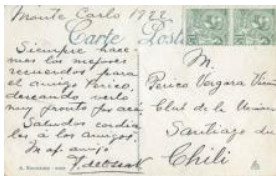 Monte Carlo 1922
Carte Post
Siempre hace
mos los mejores
recuerdos para
el amigo Perico,
deseando verlo
muy pronto por acá.
Saludos cordia
les á los amigos.
Su af. amigo
M.
Perico Vergara
Club de la Union
Santiago de
Chili